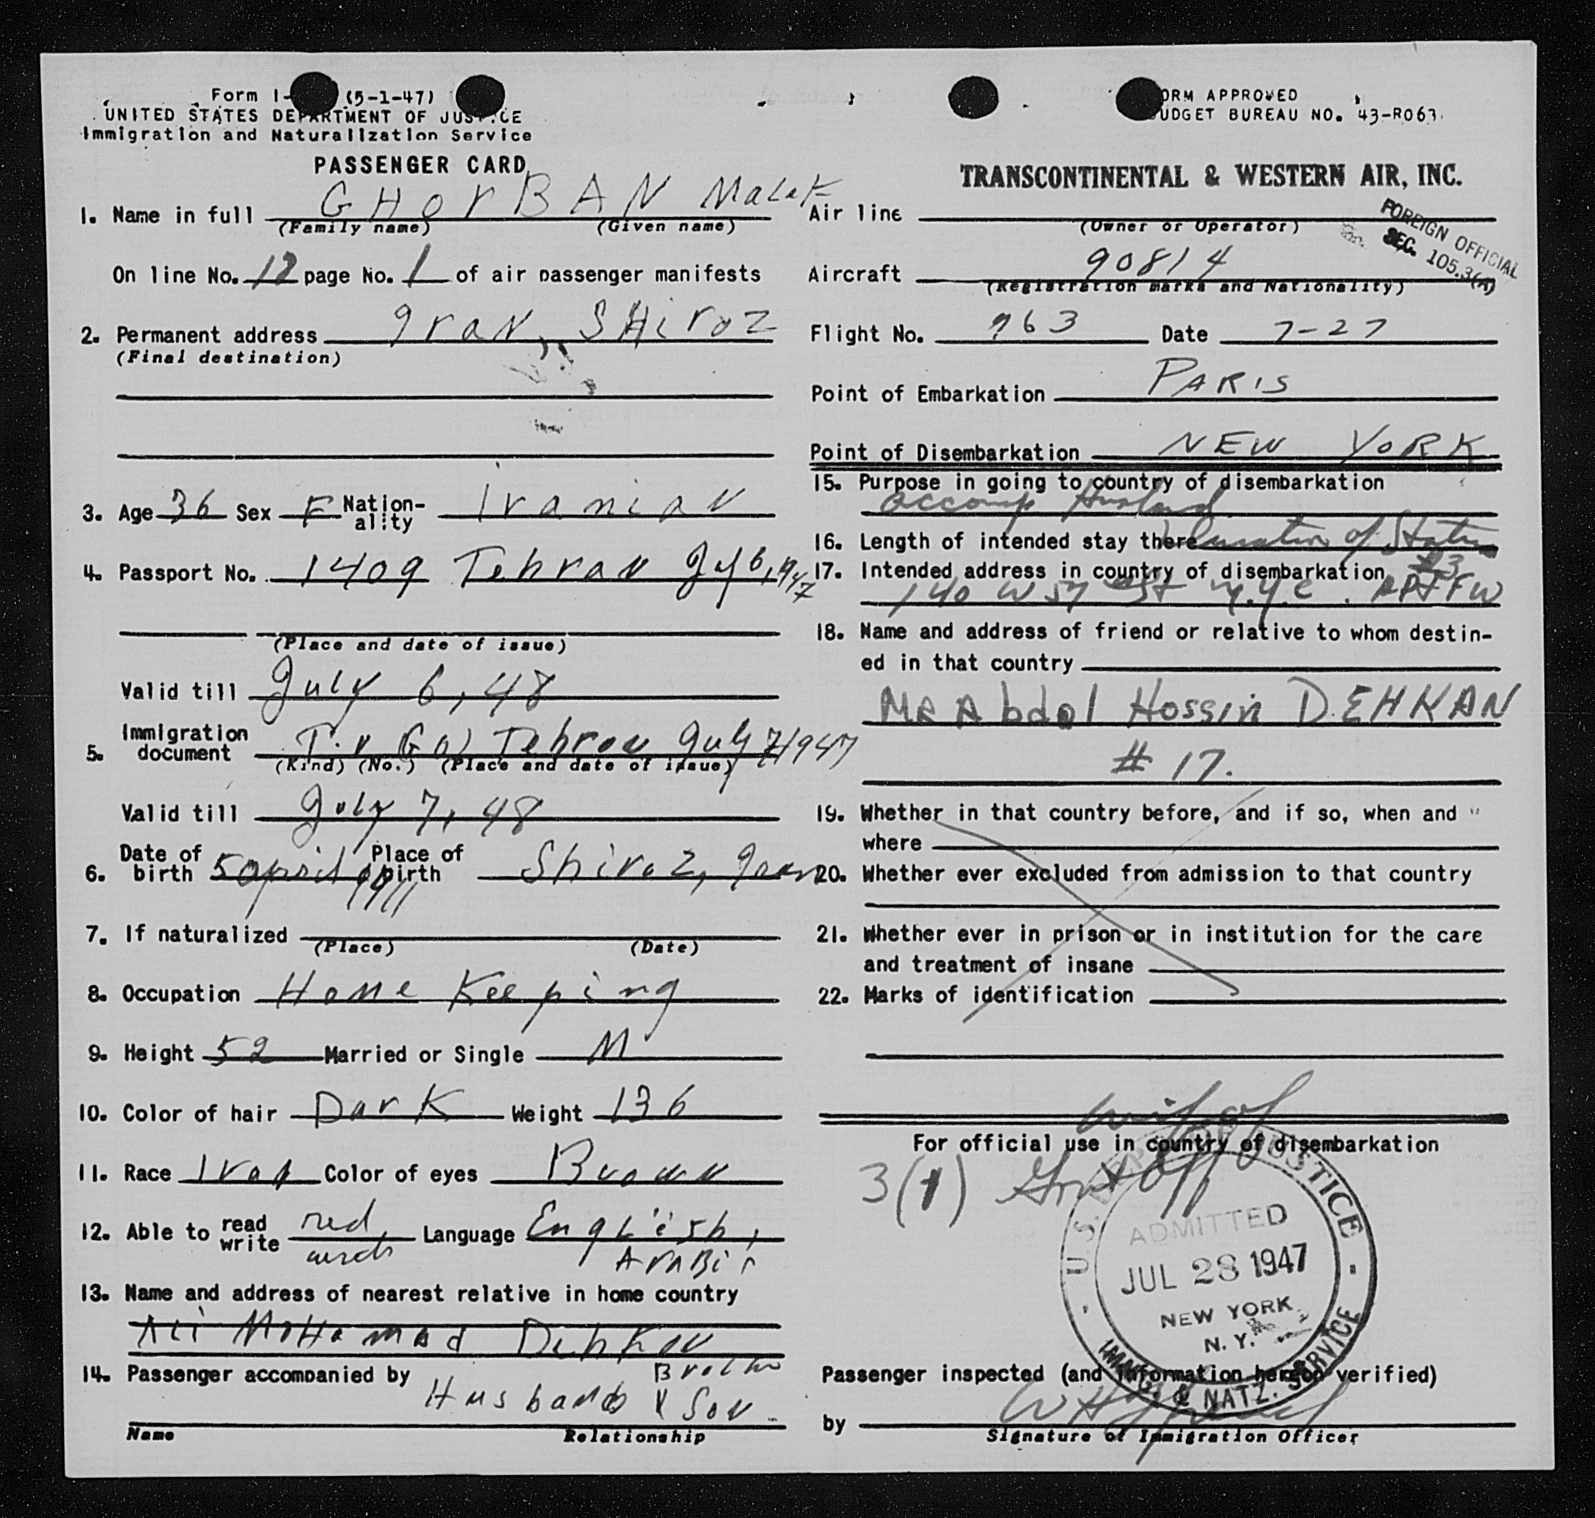 Form I- (5-1-47)
UNITED STATES DEPARTMENT OF JUSTICE
Immigration and Naturalization Service
PASSENGER CARD
1. Name in full GHOrBAN Malak
(Family name) (Given name)
On line No. 12 page No. 1 of air passenger manifests
2. Permanent address Iran, SHiroz
(Final destination)
3. Age 36 Sex F Nation-ality Iranian
4. Passport No. 1409 Tehran July 6, 1947
(Place and date of issue)
Valid till July 6, 48
5. Immigration document T.V. Tehran July 7 1947
(Kind) (No.) (Place and date of issue)
Valid till July 7, 48
6. Date of birth 5 april 1911 Place of birth Shiraz, Iran
7. If naturalized
(Place) (Date)
8. Occupation Home Keeping
9. Height 52 Married or Single M
10. Color of hair Dark Weight 136
11. Race Iran Color of eyes Brown
12. Able to read write Language English,
ArABic
13. Name and address of nearest relative in home country
Ali MoHamad Dehkan
Brother
14. Passenger accompanied by Husband & Son
Name Relationship
FORM APPROVED
BUDGET BUREAU NO. 43-R063.
TRANSCONTINENTAL & WESTERN AIR, INC.
Air line
(Owner or Operator)
FOREIGN OFFICIAL
SEC. 105.3(A)
Aircraft 90814
(Registration marks and Nationality)
Flight No. 963 Date 7-27
Point of Embarkation PARIS
Point of Disembarkation NEW YORK
15. Purpose in going to country of disembarkation
accomp Husband
16. Length of intended stay there Duration of Status
17. Intended address in country of disembarkation
140 W 57 St N.Y.C.
18. Name and address of friend or relative to whom destin-
ed in that country
MR Abdol Hossin DEHKAN
# 17.
19. Whether in that country before, and if so, when and
where
20. Whether ever excluded from admission to that country
21. Whether ever in prison or in institution for the care
and treatment of insane
22. Marks of identification
wife of
For official use in country of disembarkation
3(1) Govt Off
U.S. DEPT. OF JUSTICE
ADMITTED
JUL 28 1947
NEW YORK
N. Y.
IMMIG. & NATZ. SERVICE
Passenger inspected (and information hereon verified)
by
Signature of Immigration Officer